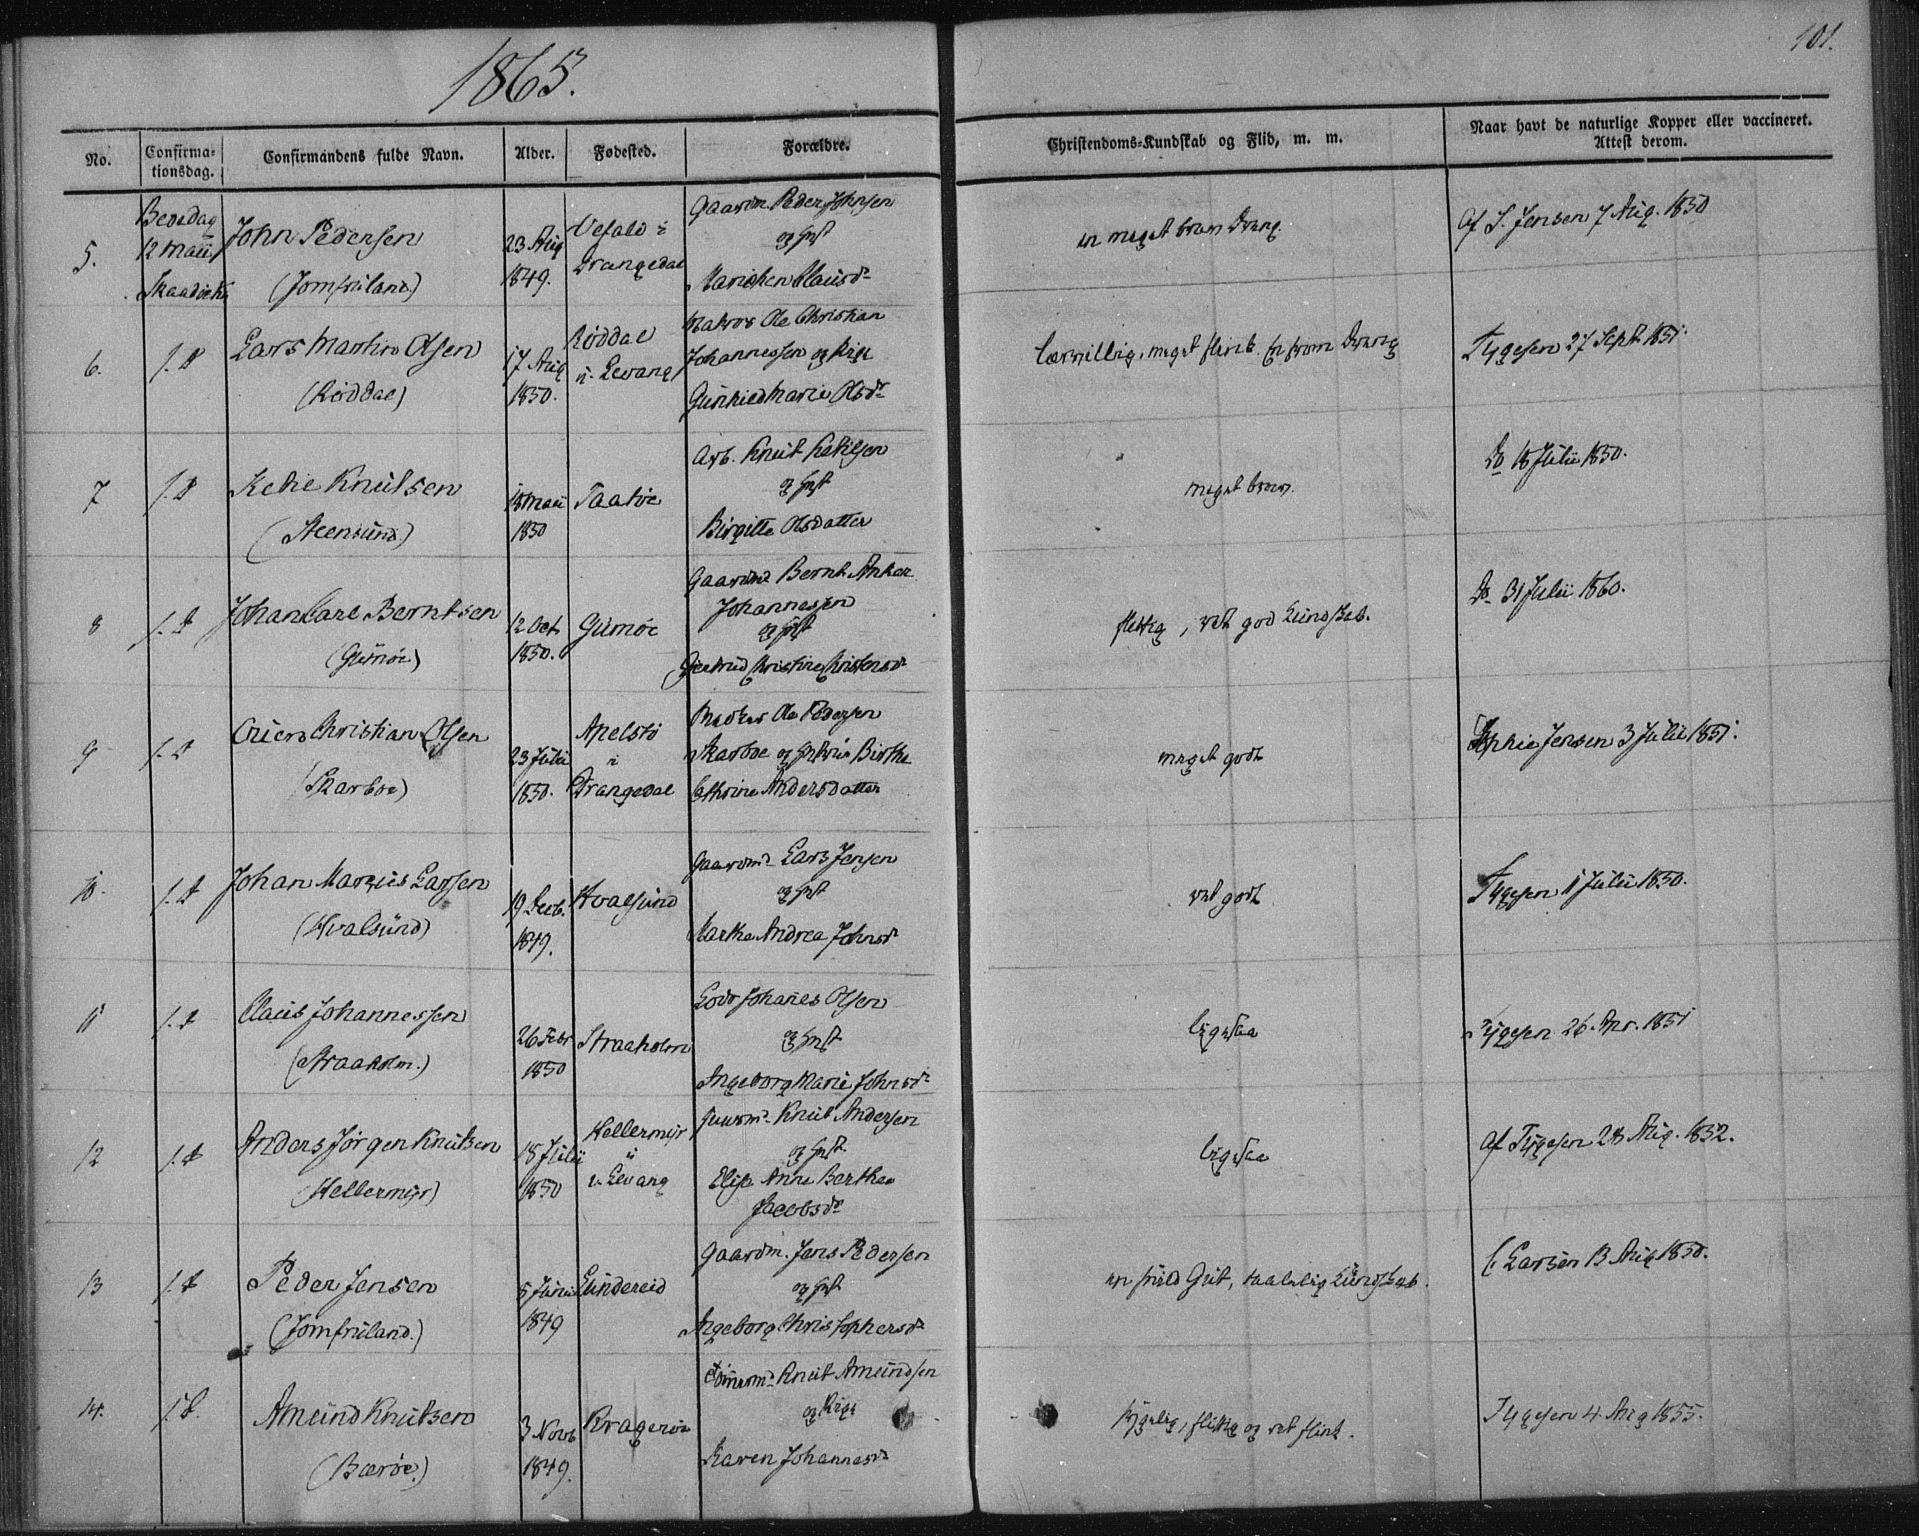 1865.
101.
No.
Confirma-
tionsdag.
Confirmandens fulde Navn.
Alder.
Fødested.
Forældre.
Christendoms-Kundskab og Flid, m. m.
Naar havt de naturlige Kopper eller vaccineret.
Attest derom.
5.
Bededag
12 Maii
Skaadøe K.
John Pedersen
(Jomfruland)
23 Aug
1849.
Vefald i
Drangedal
Gaardm. Peder Johnsen
og Hust
Marichen Clausdr
en meget brav Dreng
Af S. Jensen 7 Aug. 1850
6.
S. D
Lars Martin Olsen
(Røddal)
17 Aug
1850.
Røddal
i Levang
Matros Ole Christian
Johannessen og Pige
Gunhild Marie Olsdr
lærvillig, meget flink. En from Dreng
Tygesen 27 Sept. 1851
7
S. D
Ketil Knutsen
(Steensund)
18 Maii
1850
Taatøe
Arb. Knut Ketilsen
og Hust
Birgitte Olsdatter
meget brav.
Do 18 Julii 1850.
8
S. D
Johan Carl Berntsen
(Gumøe)
12 Oct.
1850.
Gumøe
Gaardmd Bernt Anker
Johannessen
og Hust
Gjertrud Christine Christensdr
flittig, ret god Kundskab.
Do 31 Julii 1860.
9
S. D
Christian Olsen
(Skarboe)
23 Julii
1850.
Apelstø
i
Drangedal
Ole Pedersen
Skarboe og Hustrue Birthe
Cathrine Andersdatter
meget godt
Sophie Jensen 3 Julii 1851.
10.
S. D
Johan Marius Larsen
(Hvalsund)
19 Decb.
1849.
Hvalsund
Gaardmd Lars Jensen
og Hust
Marthe Andrea Johnsdr
ret godt
Tygesen 1 Julii 1850.
11
S. D
Claus Johannessen
(Straaholm.)
26 Febr
1850
Straaholm
Lods Johanes Olsen
og Hust
Ingeborg Marie Johnsdr
ligesaa
Tygesen 26. Apr. 1851
12
S. D
Anders Jørgen Knutsen
(Hellermyr)
18 Julii
1850
Hellermyr
i Levang
Gaardmd Knut Andersen
og Hust.
Elise Anne Berthea
Jacobsdr
ligesaa
Af Tygesen 28 Aug. 1852.
13
S. D
Peder Jensen
(Jomfruland.)
5 Junii
1849
Lundereid
Gaardm. Jens Pedersen
og Hust
Ingeborg Christophersdr
en snild Gut, taalelig Kundskab.
C. Larsen 13 Aug 1850.
14.
S. D.
Amund Knutsen
(Bærøe)
3 Novb
1849.
Kragerøe
Tømermd Knut Amundsen
og Pige
Karen Johannesdr
sygelig, flittig og ret flink.
Tygesen 4. Aug 1855.